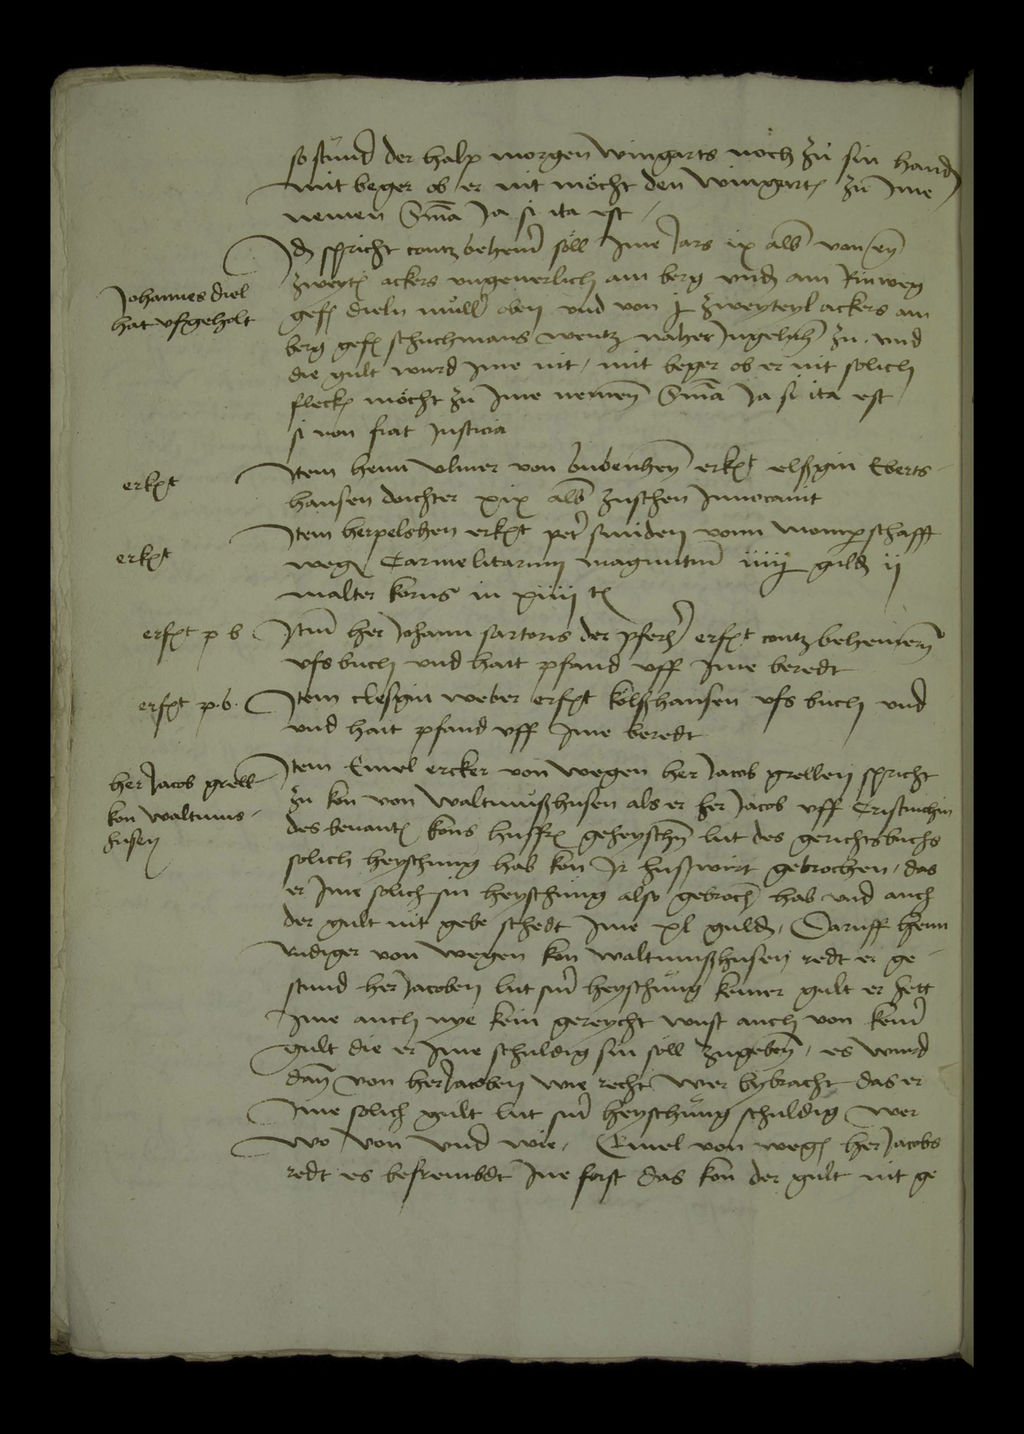 so stund der halp morgen wingarts noch zu sin hand
mit beger ob er nit mocht den wingart zu Ime
nemen Sma Ja si ita est
Johannes diel
hat uffgeholt
Id spricht contz behem soll Ime Jars ix alb von eym
zweytel ackers ungeuerlich am berg und am Rinweg
gef dieln muller oben und von j zweyteyl ackers am
berg gef schuchmans wentz naher Ingelnh zu und
die gult wurd Ime nit, mit beger ob er nit solich
fleck mocht zu Ime nemen Sma Ja si ita est
si non fiat Justicia
erkt
Item henn ulmer von bubenheym erkt elßgin Eberts
hansen dochter xix alb zuschen Inuocauit
erkt
Item herpelshen erkt peter smiden vonn momperschafft
wegen Carmelitarum maguntin iiij guld ij
malter korns in xiiii t
erft p b
Item her Johann sartoris der pferher erft contz behemern
vfs buch und hait pfand uff Ime beredt
erft p.b.
Item clesgin weber erft kolßhansen vfs buch und
und hait pfand uff Ime beredt
her Jacob grell
kon waltmus-
husen
Item Emel ercker von wegen her Jacob grellen spricht
zu kon von waltmußhusen als er her Jacob uff Cristinchin
des benanten kons husfr geheyschen lut des gerichtsbuchs
solich heyschung hab kon Ir hußwirt gebrochen, das
er Ime solich sin heyschung also gebroch hab und auch
der gult nit gebe schedt Ime xl guld, Daruff henn
rudiger von wegen kon waltmußhusen redt er ge-
stund her Jacoben lut siner heyschung keiner gult er hett
Ime auch nye kein gereycht wust auch von keiner
gult die er Ime schuldig sin soll zugeben, es wurd
dan von her Jacoben wie recht wer bybracht das er
Ime solich gult lut siner heyschung schuldig wer
wo von und wie, Emel von wegen her Jacobs
redt es befrembdt Ine fast das kon der gult nit ge